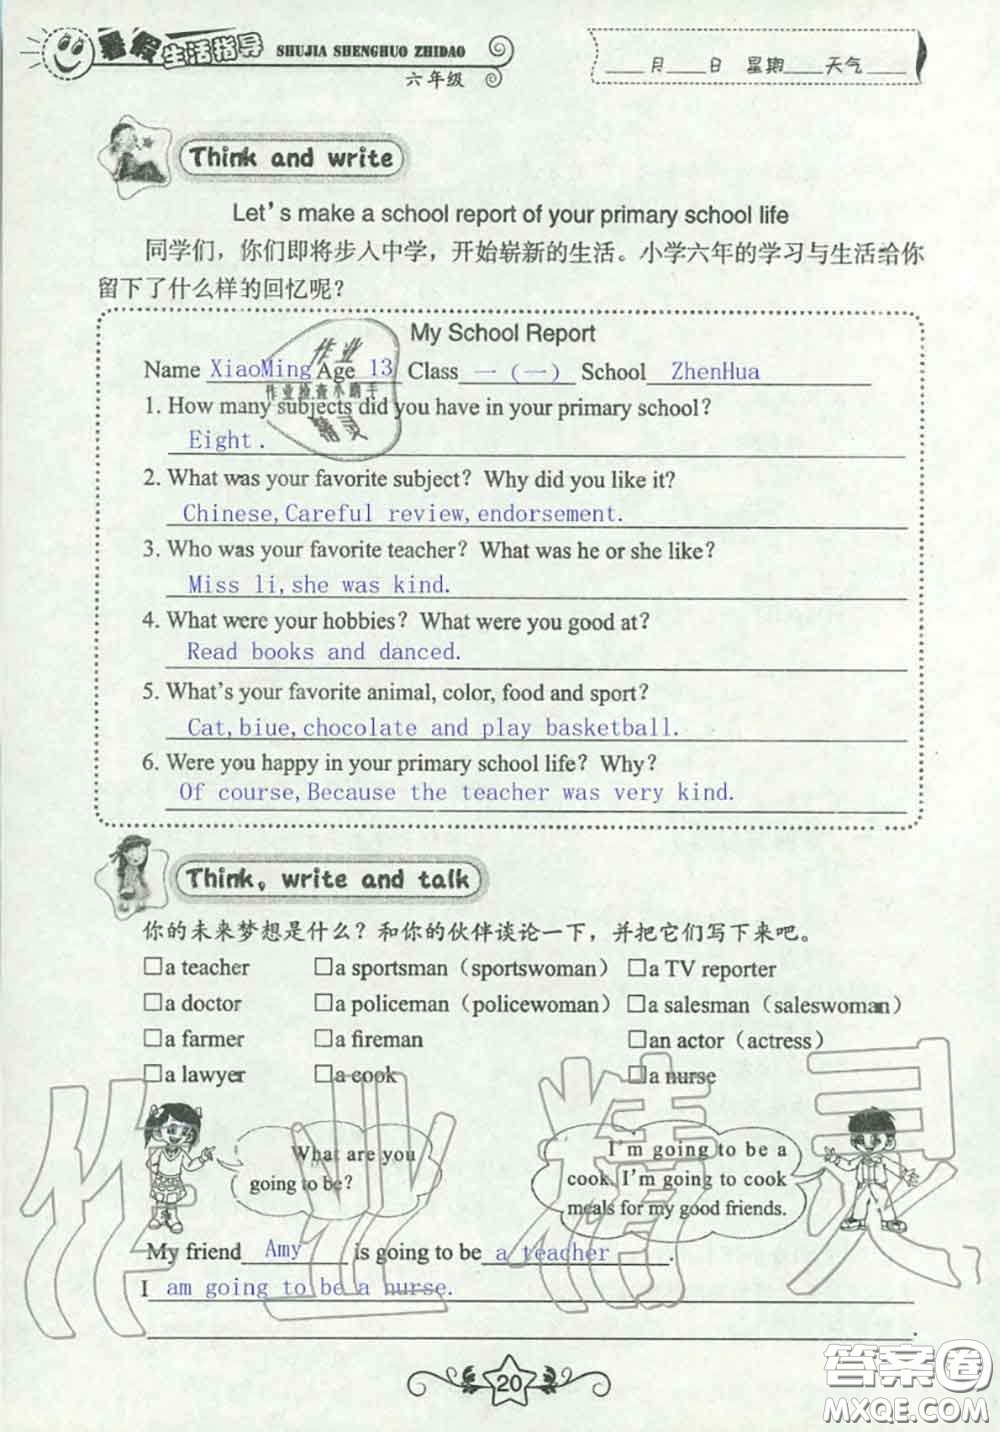 暑假生活指导 SHUJIA SHENGHUO ZHIDAO
六年级
____月____日 星期____天气____
Think and write
Let's make a school report of your primary school life
同学们，你们即将步入中学，开始崭新的生活。小学六年的学习与生活给你
留下了什么样的回忆呢？
My School Report
Name XiaoMing Age 13 Class 一（一） School ZhenHua
1. How many subjects did you have in your primary school?
Eight.
2. What was your favorite subject? Why did you like it?
Chinese,Careful review,endorsement.
3. Who was your favorite teacher? What was he or she like?
Miss li,she was kind.
4. What were your hobbies? What were you good at?
Read books and danced.
5. What's your favorite animal, color, food and sport?
Cat,biue,chocolate and play basketball.
6. Were you happy in your primary school life? Why?
Of course,Because the teacher was very kind.
作业
作业检查小助手
精灵
Think, write and talk
你的未来梦想是什么？和你的伙伴谈论一下，并把它们写下来吧。
□a teacher □a sportsman（sportswoman） □a TV reporter
□a doctor □a policeman（policewoman） □a salesman（saleswoman）
□a farmer □a fireman □an actor（actress）
□a lawyer □a cook □a nurse
What are you
going to be?
I'm going to be a
cook. I'm going to cook
meals for my good friends.
My friend Amy is going to be a teacher.
I am going to be a nurse.
作业精灵
20
答案圈
MXQE.COM